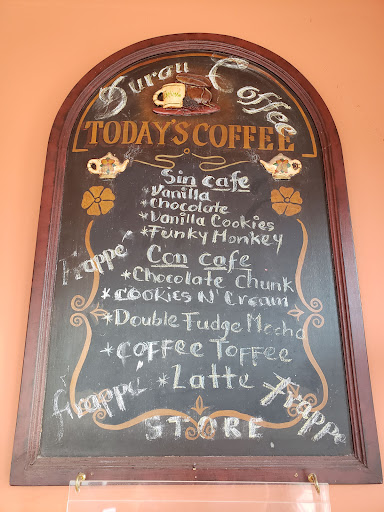 Durau Coffee
TODAY'S COFFEE
Sin cafe
*Vanilla
*chocolate
*Vanilla Cookies
*Funky Monkey
Frappe'
Con cafe
*Chocolate Chunk
*cookies N' Cream
*Double Fudge Mocha
*COFFEE TOFFEE
*Latte
frappe'
frappe
STORE